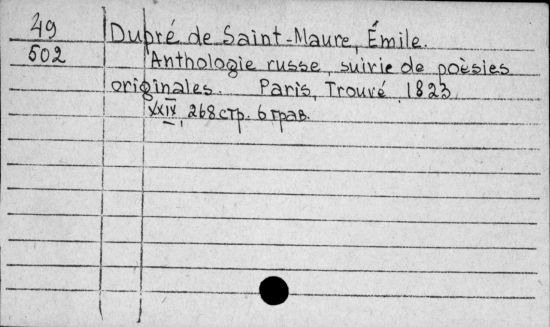 49
502
Dupré de Saint-Maure, Émile.
Anthologie russe, suivie de poèsies
originales. Paris, Trouvé, 1823.
XXIX, 268 стр. 6 грав.